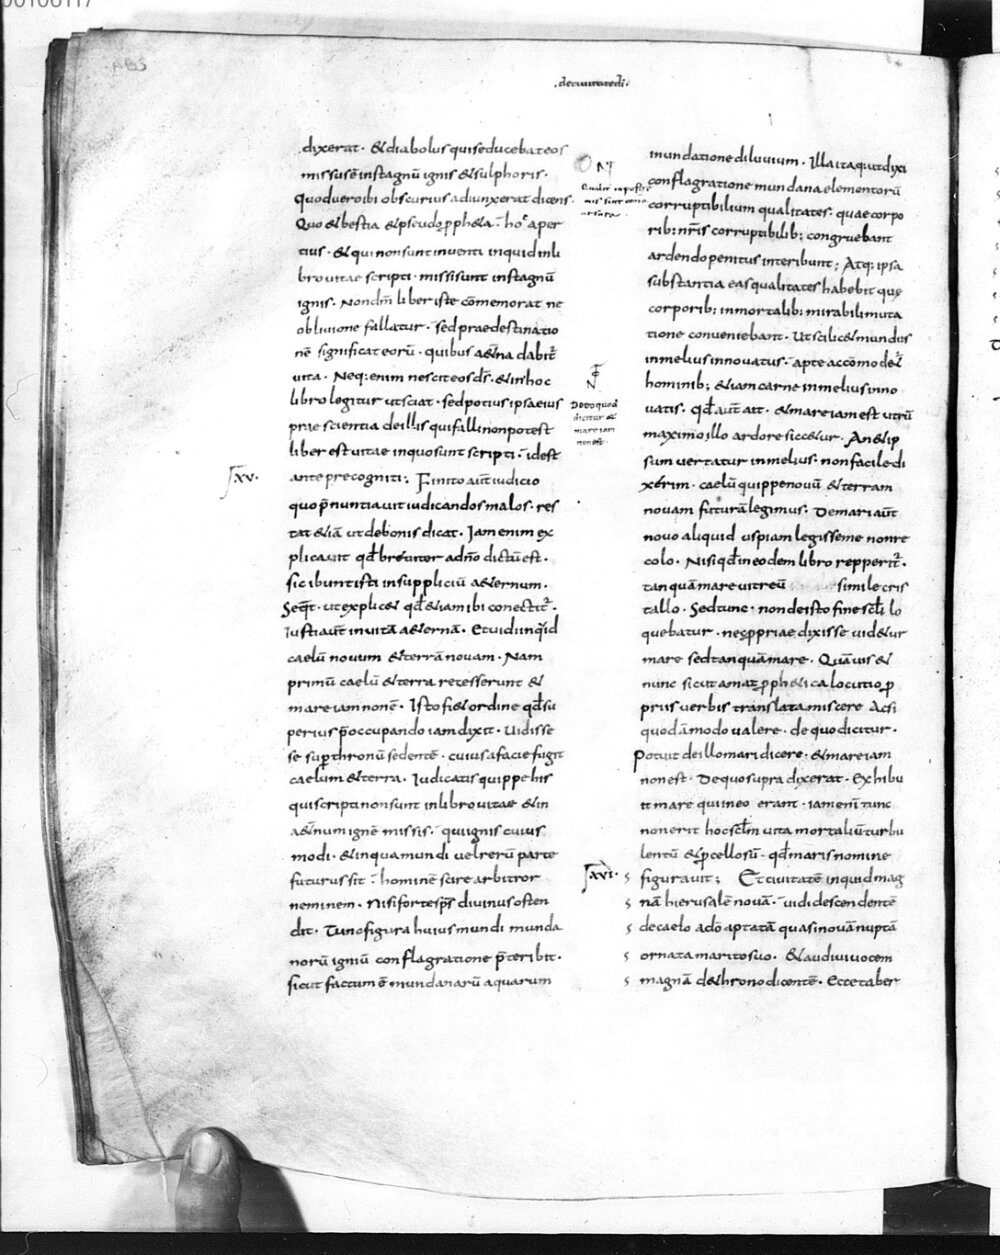 00106117
.deciuitatedī.
dixerat. &diabolus quiseducebateos
missusē instagnū ignis &sulphoris.
Quoduero ibi obscurius adiunxerat dicens.
Quo &bestia &pseudopphęta. hoc aper
tius. &qui nonsunt inuenti inquid inli
brouitae scripti. missisunt instagnū
ignis. Nondm̄ liber iste cōmemorat ne
obliuione fallatur. sed praedestinatio
nē significat eorū. quibus a&̄na dabit̄
uita. Neq: enim nescit eos d̄s. &inhoc
libro legitur ut sciat. sedpotius ipsa eius
praescientia deillis qui falli nonpotest
liber est uitae inquo sunt scripti. idest
xv. ante precogniti; Finito aūt iudicio
quo p̄nuntiauit iudicandos malos. res
tat &iā ut debonis dicat. Iam enim ex
plicauit qd̄ breuiter adn̄o dictū est.
sic ibunt isti insuppliciū a&ernum.
Seqt̄. ut explic& qd̄ &iam ibi conectit̄.
Iusti aūt inuitā a&ernā. Etuidi inqid
caelū nouum &terrā nouam. Nam
primū caelū &terra recesserunt &
mare iam nonē. Isto fi& ordine qd̄ su
perius p̄occupando iam dixit. Uidisse
se sup thronū sedentē. cuius afacie fugit
caelum &terra. Iudicatis quippe his
qui scripti non sunt inlibro uitae &in
a&̄num ignē missis. qui ignis cuius
modi. &inqua mundi uel rerū parte
futurus sit. hominē scire arbitror
neminem. Nisi forte sps̄ diuinus osten
dit. Tunc figura huius mundi munda
norū igniū conflagratione p̄teribit.
sicut factum ē mundanarū aquarum
Qualit̄ inpostre
mis sint omia
arsura.
Deeo quod
dicitur &
mare iam
non est.
inundatione diluuium. Illa itaq: ut dixi
conflagratione mundana elementorū
corruptibilium qualitates. quae corpo
rib: nr̄is corruptibilib; congruebant
ardendo penitus interibunt; Atq: ipsa
substantia eas qualitates habebit quę
corporib; inmortalib; mirabili muta
tione conueniebant. Ut scilic& mundus
inmelius innouatus. apte accomod&̄
hominib; &iam carne inmelius inno
uatis. qd̄ aūt ait. &mare iam est utrū
maximo illo ardore sicc&ur. An&ip
sum uertatur inmelius. non facile di
xerim. caelū quippe nouū &terram
nouam futurā legimus. Demari aūt
nouo aliquid uspiam legisse me nonre
colo. Nisi qd̄ ineodem libro repperit̄.
tanquā mare uitreū simile cris
tallo. Sed tunc. non deisto fine scl̄i lo
quebatur. nec pprie dixisse uid&ur
mare sed tanquā mare. Quāuis &
nunc sicut amat pphetica locutio p
priis uerbis translata miscere Acsi
quodāmodo ualere. de quo dicitur.
Potuit de illo mari dicere. &mare iam
non est. Dequo supra dixerat. Exhibu
it mare qui ineo erant. iam enī tunc
non erit hoc sclm̄ uita mortaliū turbu
lentū &pcellosū. qd̄ maris nomine
xvi. figurauit; Et ciuitatē inquid mag
nā hierusalē nouā. uidi descendentē
decaelo adō aptatā quasi nouā nuptā
ornata marito suo. &audiui uocem
magnā de throno dicentē. Ecce taber